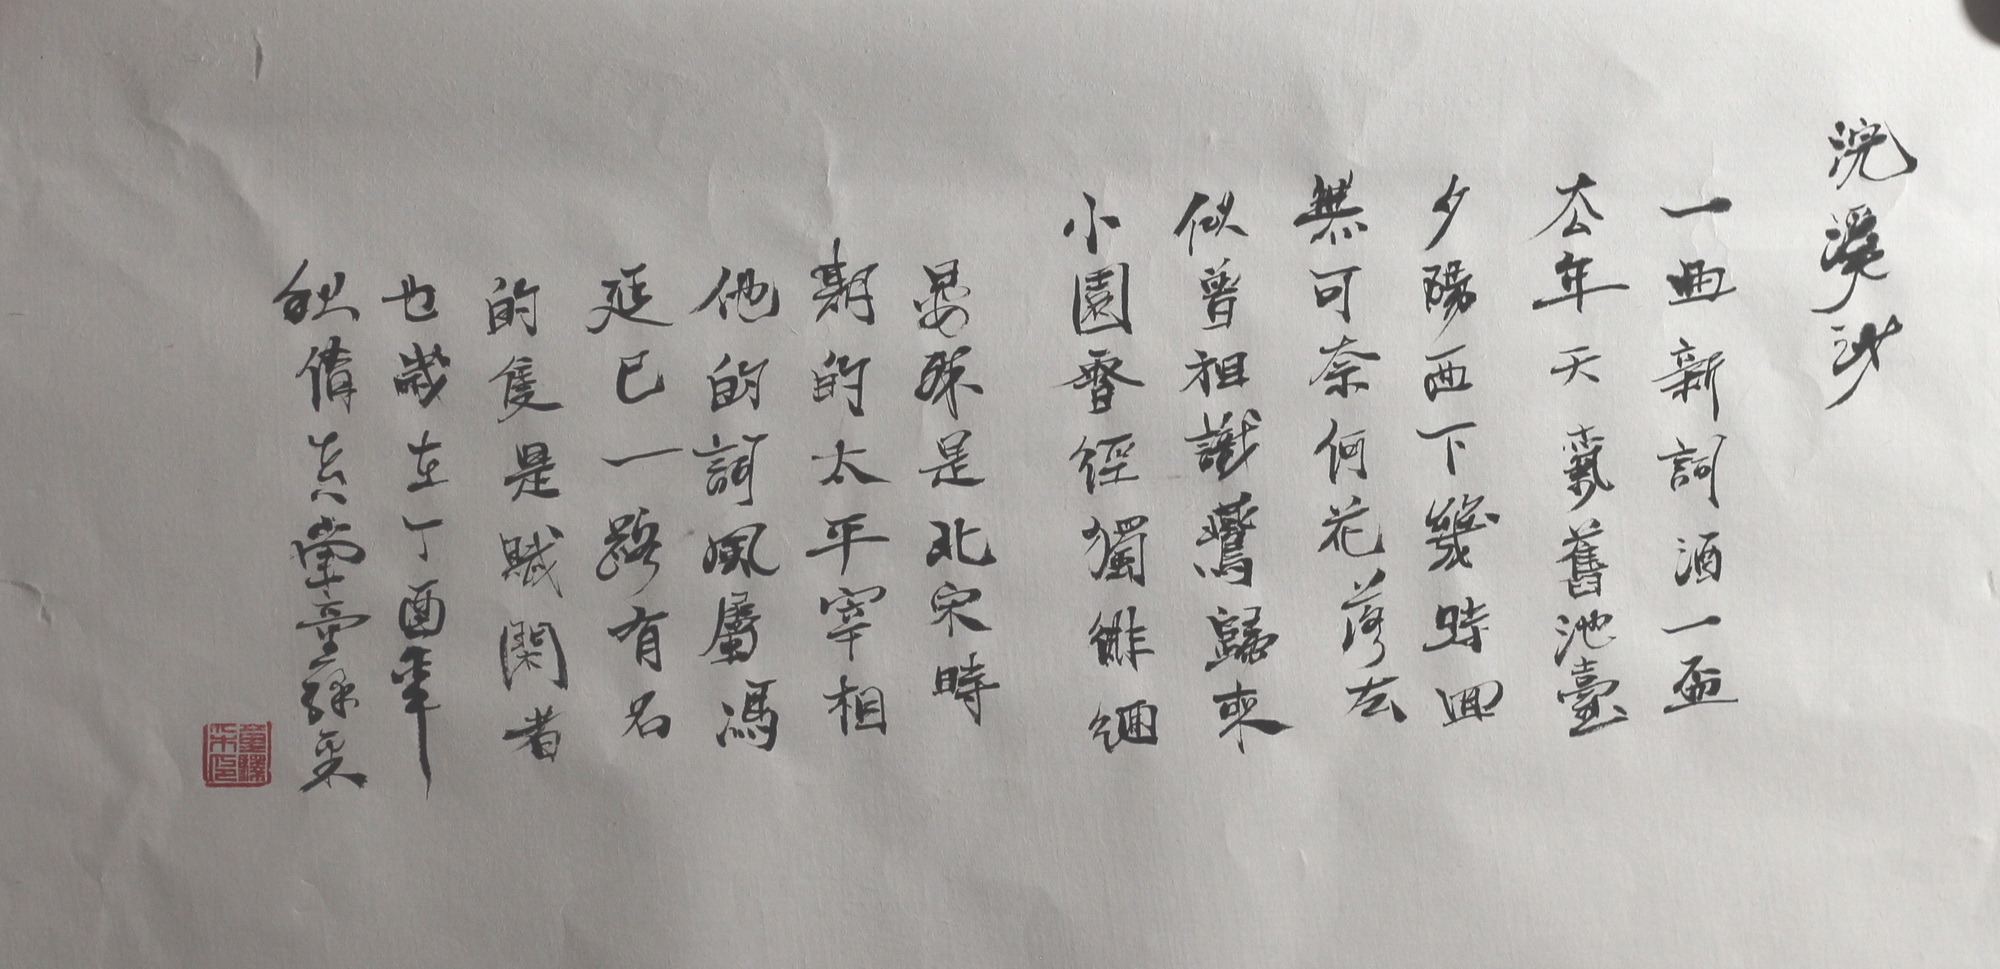 浣溪沙
一曲新詞酒一盃
去年天氣舊池臺
夕陽西下幾時回
無可奈何花落去
似曾相識鷰歸來
小園香徑獨徘徊
晏殊是北宋時
期的太平宰相
他的詞風屬馮
延已一路有名
的隻是賦閑者
也歲在丁酉年
秋 堂童